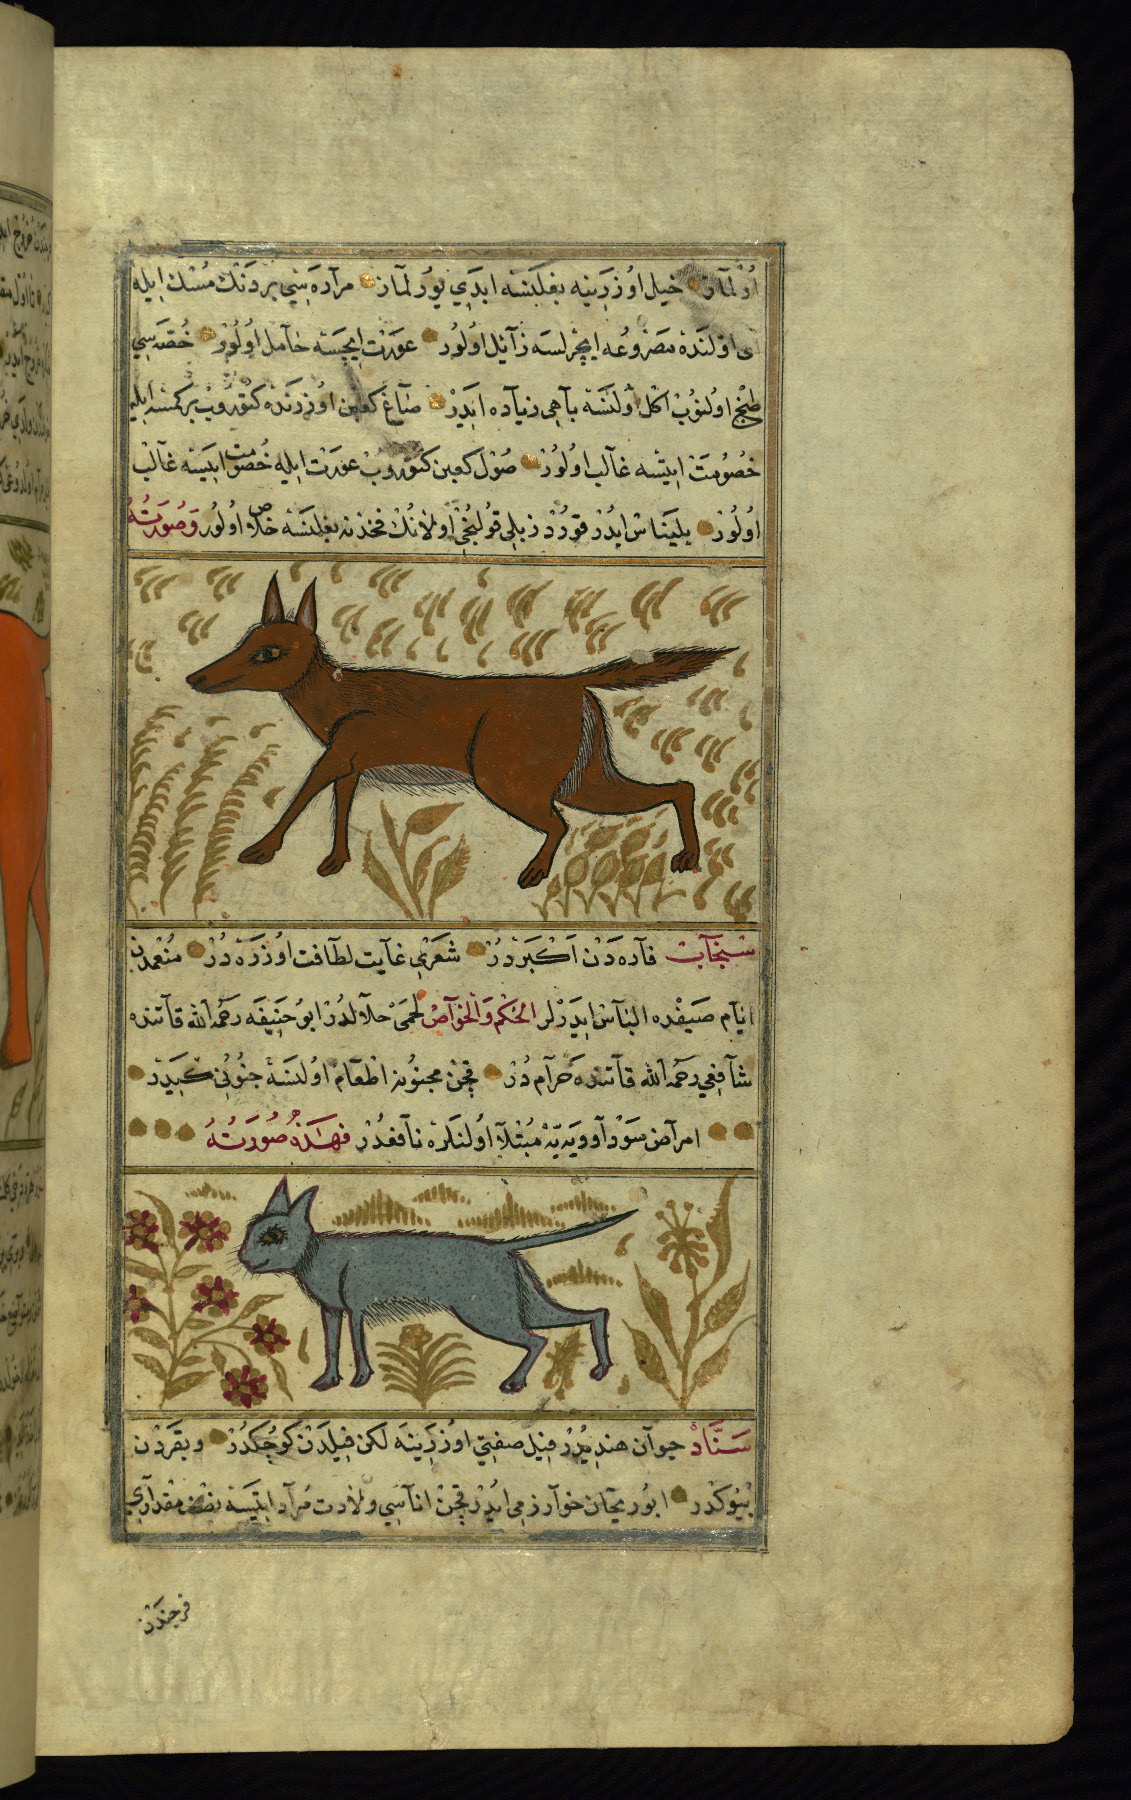 اولماز خيل اوزرينه بغلنسه ابدي يورلماز مراره سي بر دنك مسك ايله
اولنده مصروعه ايچرلسه زآئل اولور عورت ايچسه حامل اولور خصيه سي
طبخ اولنوب اكل اولنسه باهي زياده ايدر صاغ كعبن اوزرنده كتوروب بركمسه ايله
خصومت ايتسه غالب اولور صول كعبن كتوروب عورت ايله خصومت ايتسه غالب
اولور بليناس ايدر قورد زبلي قولنجي اولانك فخذنه بغلنسه خلاص اولور وصورته
سنجاب فآره دن اكبردر شعري غايت لطافت اوزره در متنعمدن
ايام صيفده الباس ايدرلر الحكم والخواص لحمى حلالدر ابو حنيفه رحمه الله قاتنده
شافعي رحمه الله قاتنده حرام در قچن مجنونه اطعام اولنسه جنوني كيدر
امراض سوداويه يه مبتلا اولنلره نافعدر فهذه صورته
سناد حيوان هنديدر فيل صفتي اوزرينه لكن فيلدن كوچكدر و بقردن
بيوكدر ابو ريحان خوارزمي ايدر قچن اناسي ولادت مراد ايتسه نصف مقداري
فرجندن